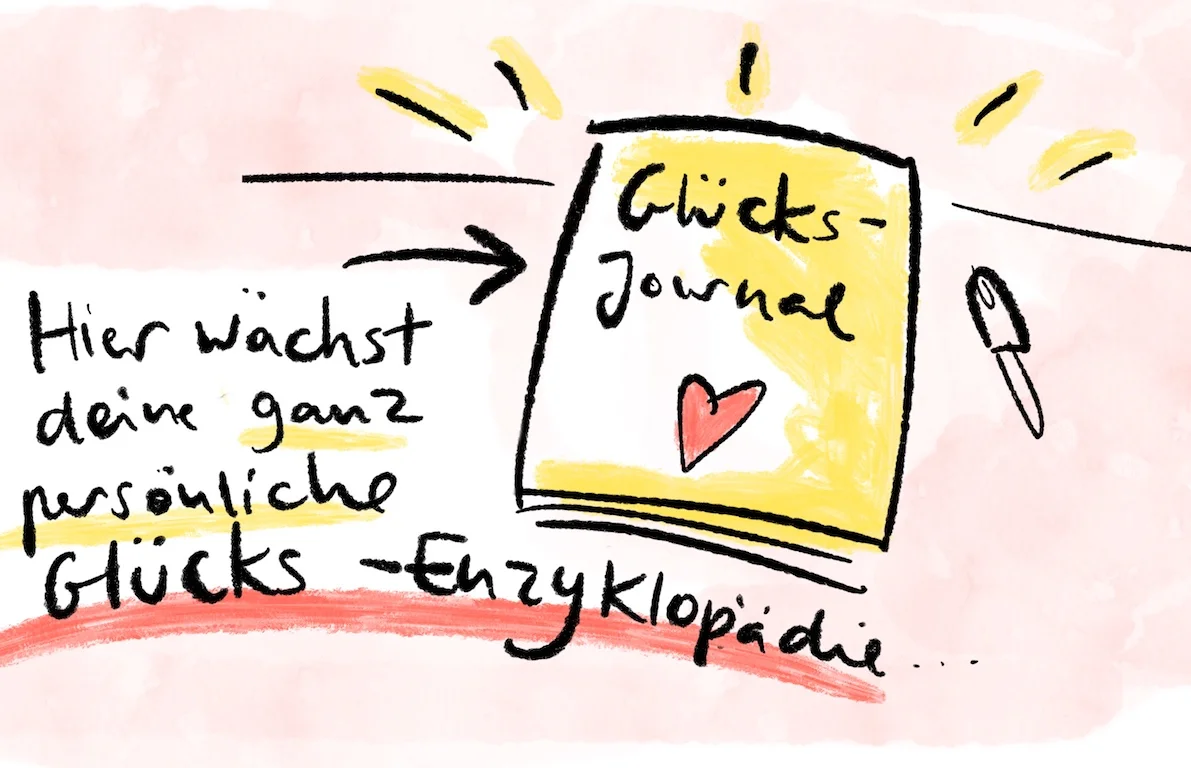 Glücks-
Journal
Hier wächst
deine ganz
persönliche
Glücks-Enzyklopädie...